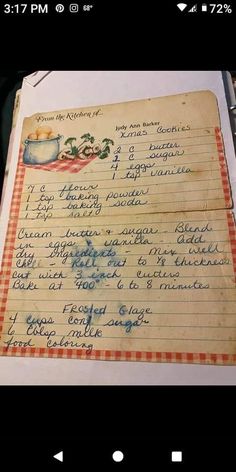 3:17 PM 68° 72%
From the Kitchen of...
Judy Ann Barker
Xmas Cookies
2 C butter
2 C sugar
4 eggs
1 tsp vanilla
7 C flour
1 tsp baking powder
1 tsp baking soda
1 tsp salt
Cream butter & sugar - Blend
in eggs & vanilla Add
dry ingredients - mix well
Chill - Roll out to 1/8 thickness
cut with 3 inch cutters
Bake at 400° - 6 to 8 minutes
Frosted Glaze
4 cups conf sugar
6 tblsp milk
food coloring